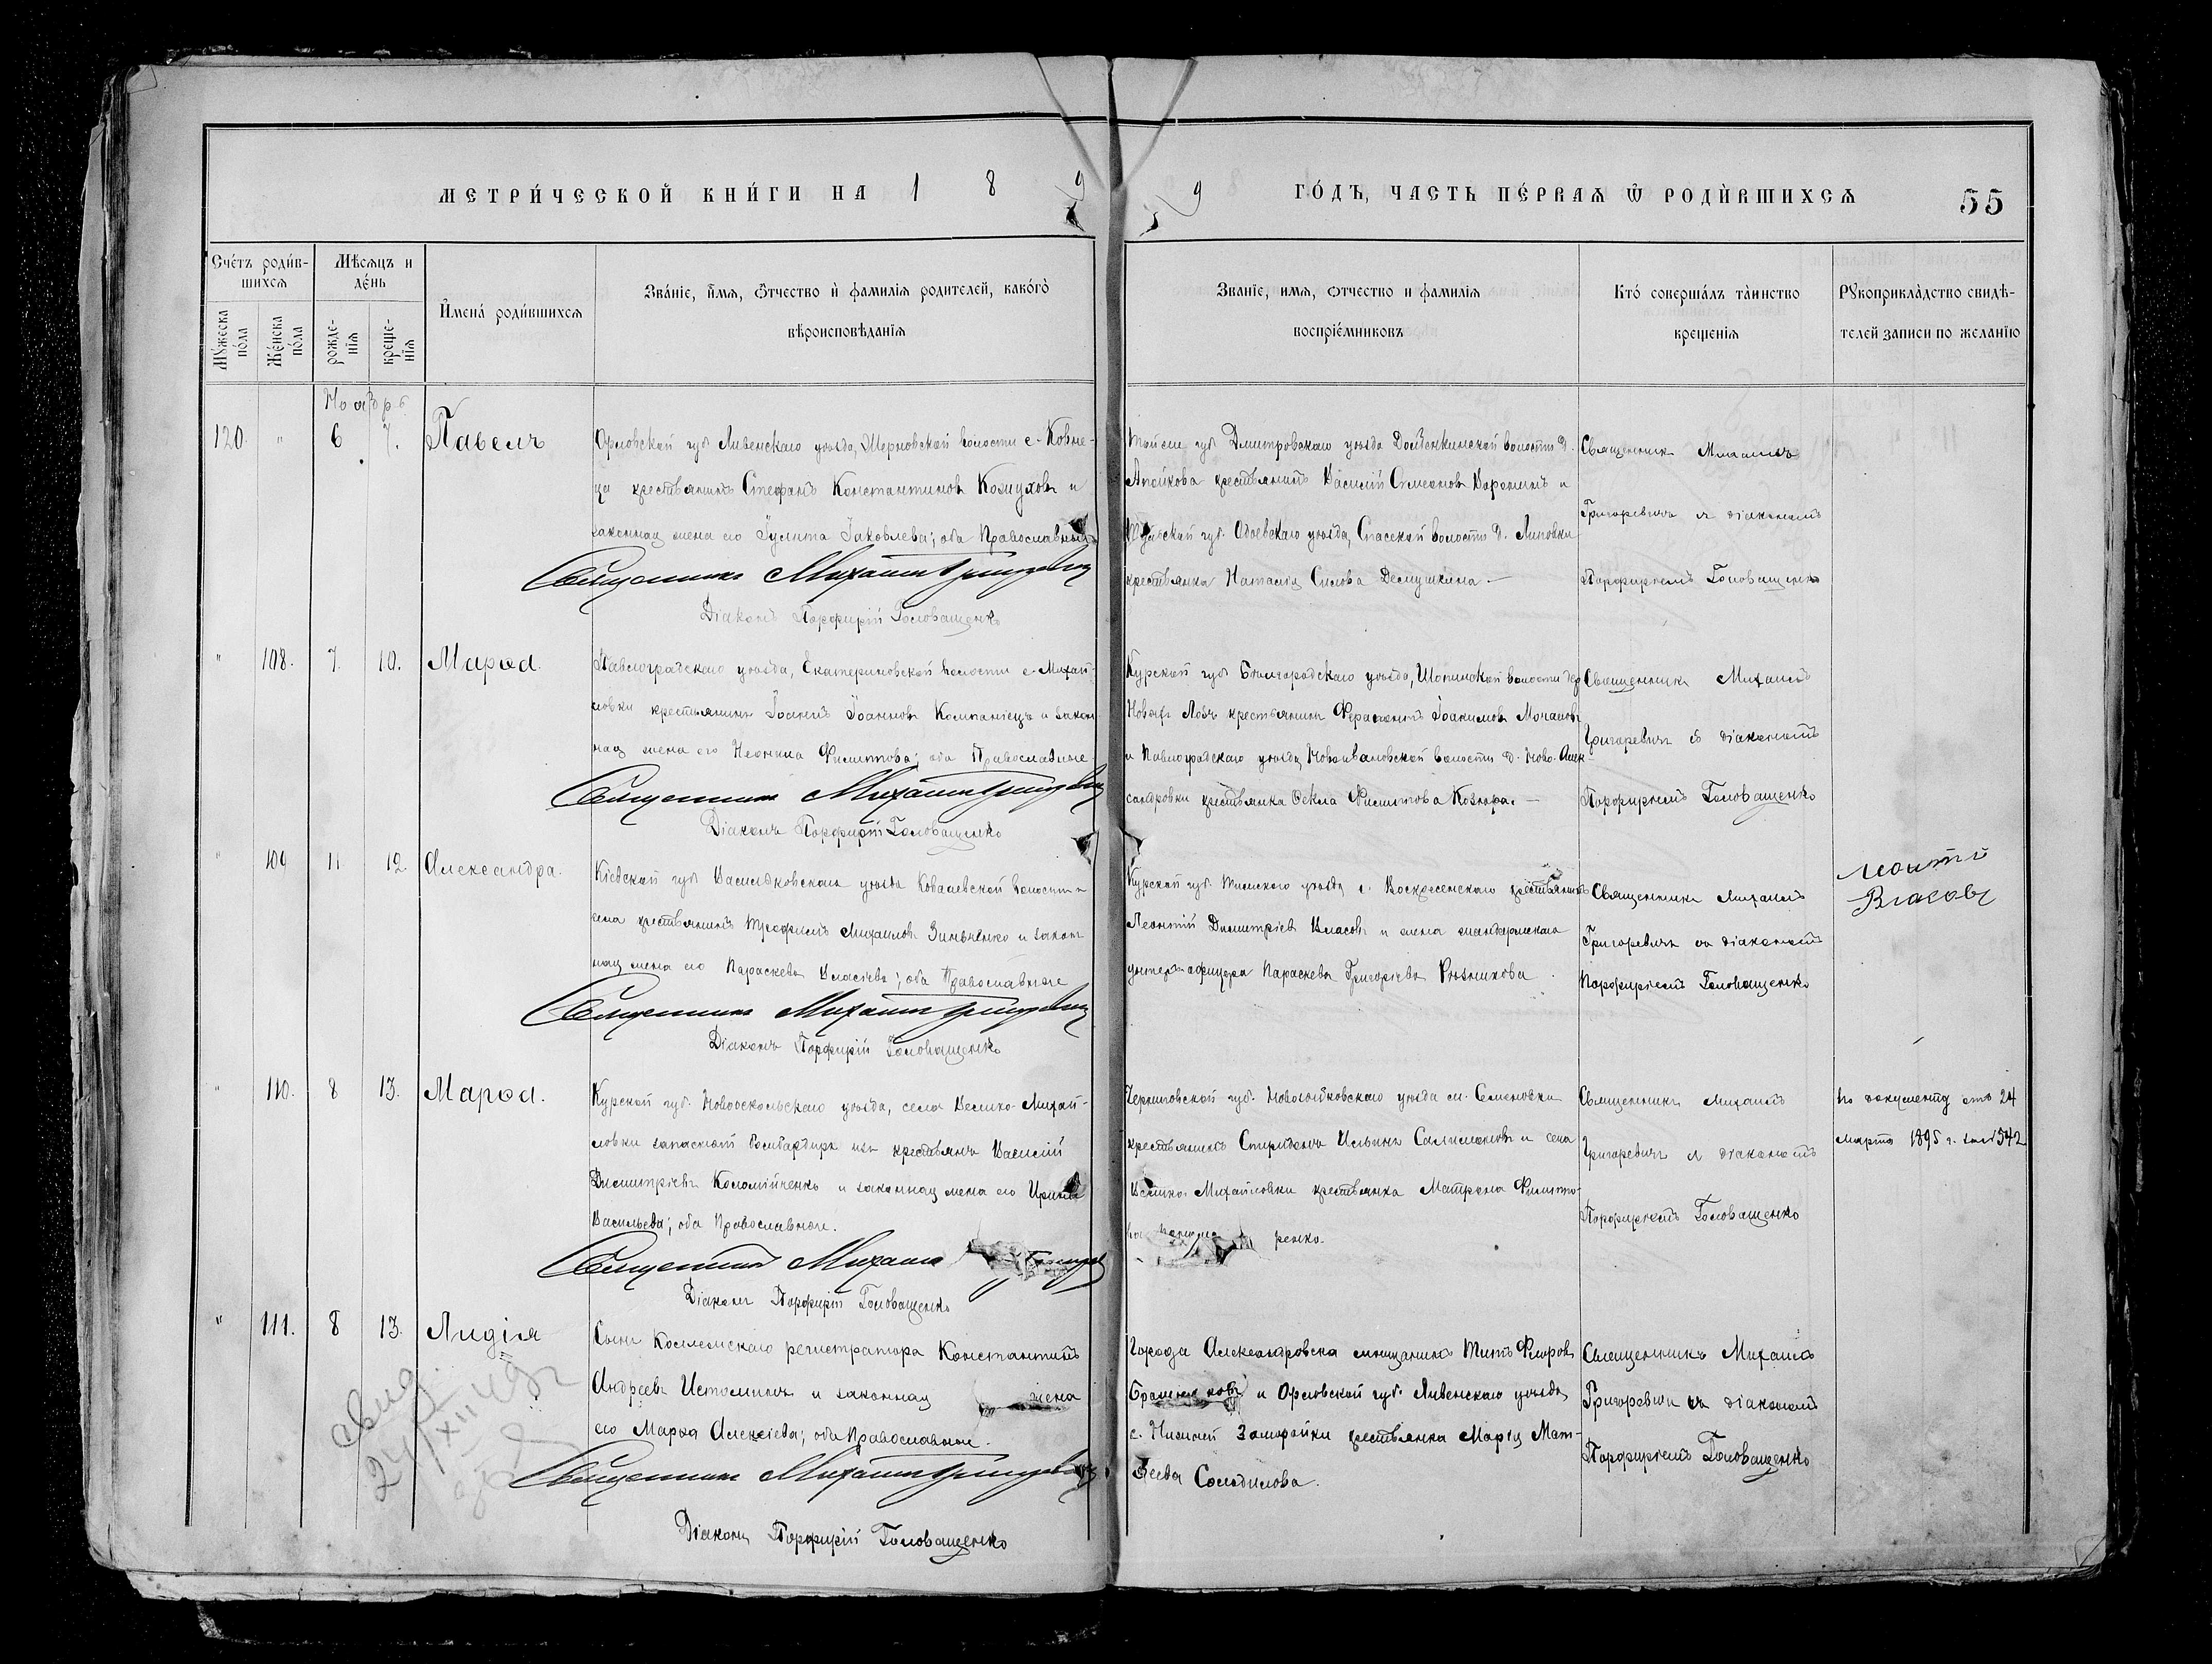 МЕТРИ́ЧЕСКОЙ КНИ́ГИ НА 1 8 9
9 ГО́ДЪ, ЧАСТЬ ПЕ́РВАѦ Ѿ РОДИ́ВШИХСѦ 55
Сче́тъ роди́в-
шихсѧ
Мѣ́сѧцъ и
де́нь
Мꙋ́жеска
по́ла
Же́нска
по́ла
рожде-
нїѧ
креще-
нїѧ
И҆мена́ роди́вшихсѧ
Зва́нїе, и҆́мѧ, ѻ҆́тчество и҆ фамилїѧ родителей, како́гѡ
вѣроисповѣданїѧ
Званїе, имѧ, отчество и фамилїѧ
воспрїе́мниковъ
Кто́ соверша́лъ та́инство
крещенїѧ
Рꙋкоприкла́дство свидѣ-
телей записи по желанїю
Ноябрь
120 " 6 7. Павелъ
Орловской губ Ливенскаго уѣзда, Черновской волости с. Ковне-
ца крестьянинъ Стефанъ Константиновъ Кожуховъ и
законная жена его Іулита Іаковлева; оба Православные
Священникъ Михаилъ Григоревичъ
Діаконъ Порфирій Головащенко
Тойже губ Дмитровскаго уѣзда волости д.
крестьянинъ Василій Симеоновъ Воронинъ и
Тульской губ. Одоевскаго уѣзда, Спасской волости д. Липовки
крестьянка Наталія Силова Демушкина
Священникъ Михаилъ
Григоревичъ съ діакономъ
Порфиріемъ Головащенко
" 108. 7. 10. Марѳа.
Павлоградскаго уѣзда, Екатериновской волости с. Михай-
ловки крестьянинъ Іоаннъ Іоанновъ Компаніецъ и закон
ная жена его Неонила Филиппова; оба Православные
Священникъ Михаилъ Григоревичъ
Діаконъ Порфирій Головащенко
Курской губ Бѣлгородскаго уѣзда, Шопинской волости дер
Новой Лозъ крестьянинъ Ферапонтъ Іоакимовъ Мочаловъ
и Павлоградскаго уѣзда, Новоивановской волости д. Ново-Алек-
сандровки крестьянка Ѳекла Филиппова Козыра.
Священникъ Михаилъ
Григоревичъ съ діакономъ
Порфиріемъ Головащенко
" 109 11 12. Александра.
Кіевской губ Васильковскаго уѣзда Ковалевской волости и
села крестьянинъ Трофимъ Михаиловъ Зинченко и закон
ная жена его Параскева Власіева; оба Православные
Священникъ Михаилъ Григоревичъ
Діаконъ Порфирій Головащенко
Курской губ. Тимскаго уѣзда с. Воскресенскаго крестьянинъ
Леонтій Димитріев Власовъ и жена жандармскаго
унтеръ-офицера Параскева Григоріева Рѣзникова
Священникъ Михаилъ
Григоревичъ съ діакономъ
Порфиріемъ Головащенко
Леонтій
Власовъ
" 110. 8 13. Марѳа.
Курской губ. Новооскольскаго уѣзда, села Велико-Михай-
ловки запасной бомбардиръ изъ крестьянъ Василій
Димитріевъ Коломійченко и законная жена его Ирина
Васильева; оба Православные.
Священникъ Михаилъ
Діаконъ Порфирій Головащенко
Черниговской губ. Новозыбковскаго уѣзда м. Семеновки
крестьянинъ Спиридонъ Ильинъ и села
Велико-Михайловки крестьянка Матрона Филиппо-
ва ренко.
Священникъ Михаилъ
Григоревичъ съ діакономъ
Порфиріемъ Головащенко
По документу отъ 24
марта 1895 г. за № 542
" 111. 8 13. Лидія
Сынъ Коллежскаго регистратора Константинъ
Андреевъ Истоминъ и законная жена
его Марѳа Алексіева; оба Православные.
Священникъ Михаилъ Григоревичъ
Діаконъ Порфирій Головащенко
Города Александровска мѣщанинъ Титъ Флоровъ
и Орловской губ. Ливенскаго уѣзда,
с. Нижней Заморойки крестьянка Марія Мат-
ѳеева Солодилова.
Священникъ Михаилъ
Григоревичъ съ діакономъ
Порфиріемъ Головащенко
свид.
24/XII 49г